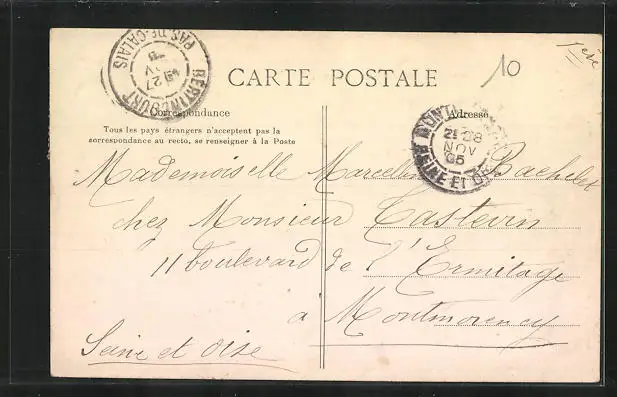 1ère
10
CARTE POSTALE
BERTINCOURT
PAS-DE-CALAIS
27
Correspondance
Adresse
Tous les pays étrangers n'acceptent pas la
correspondance au recto, se renseigner à la Poste
28
NOV
05
SEINE ET OISE
Mademoiselle Marcelline Bachelet
chez Monsieur Tastevin
11 boulevard de l'Ermitage
à Montmorency
Seine et Oise